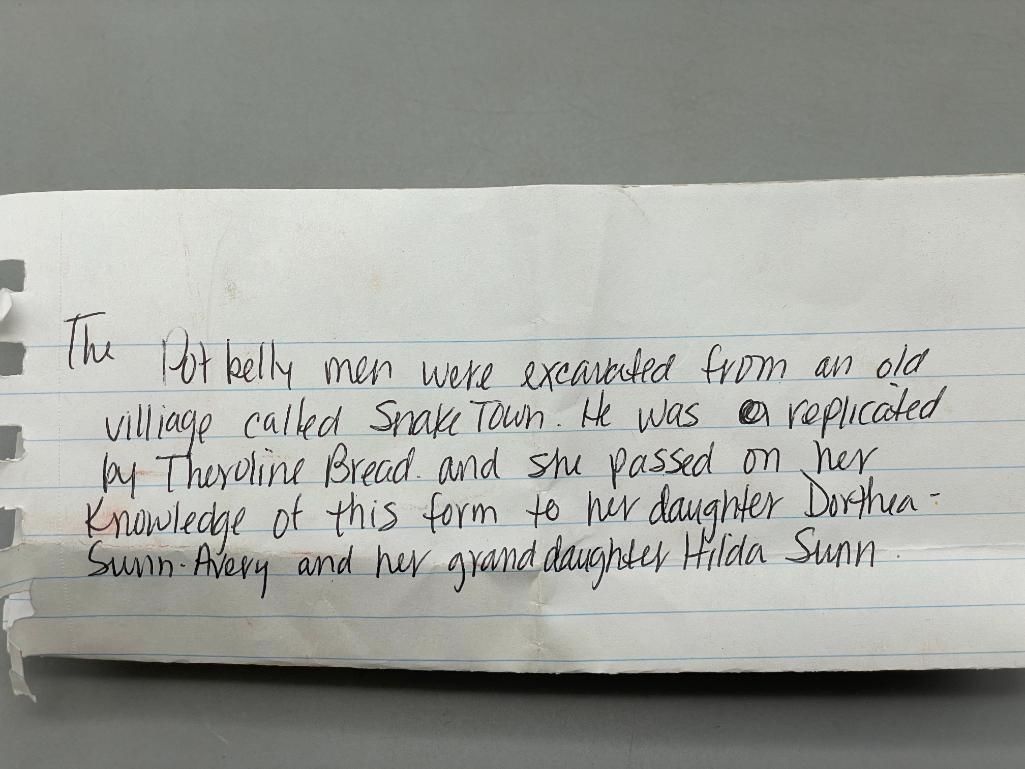 The Pot belly men were excavated from an old
villiage called Snake Town. He was a replicated
by Theroline Bread. and she passed on her
Knowledge of this form to her daughter Dorthea-
Sunn-Avery and her granddaughter Hilda Sunn.